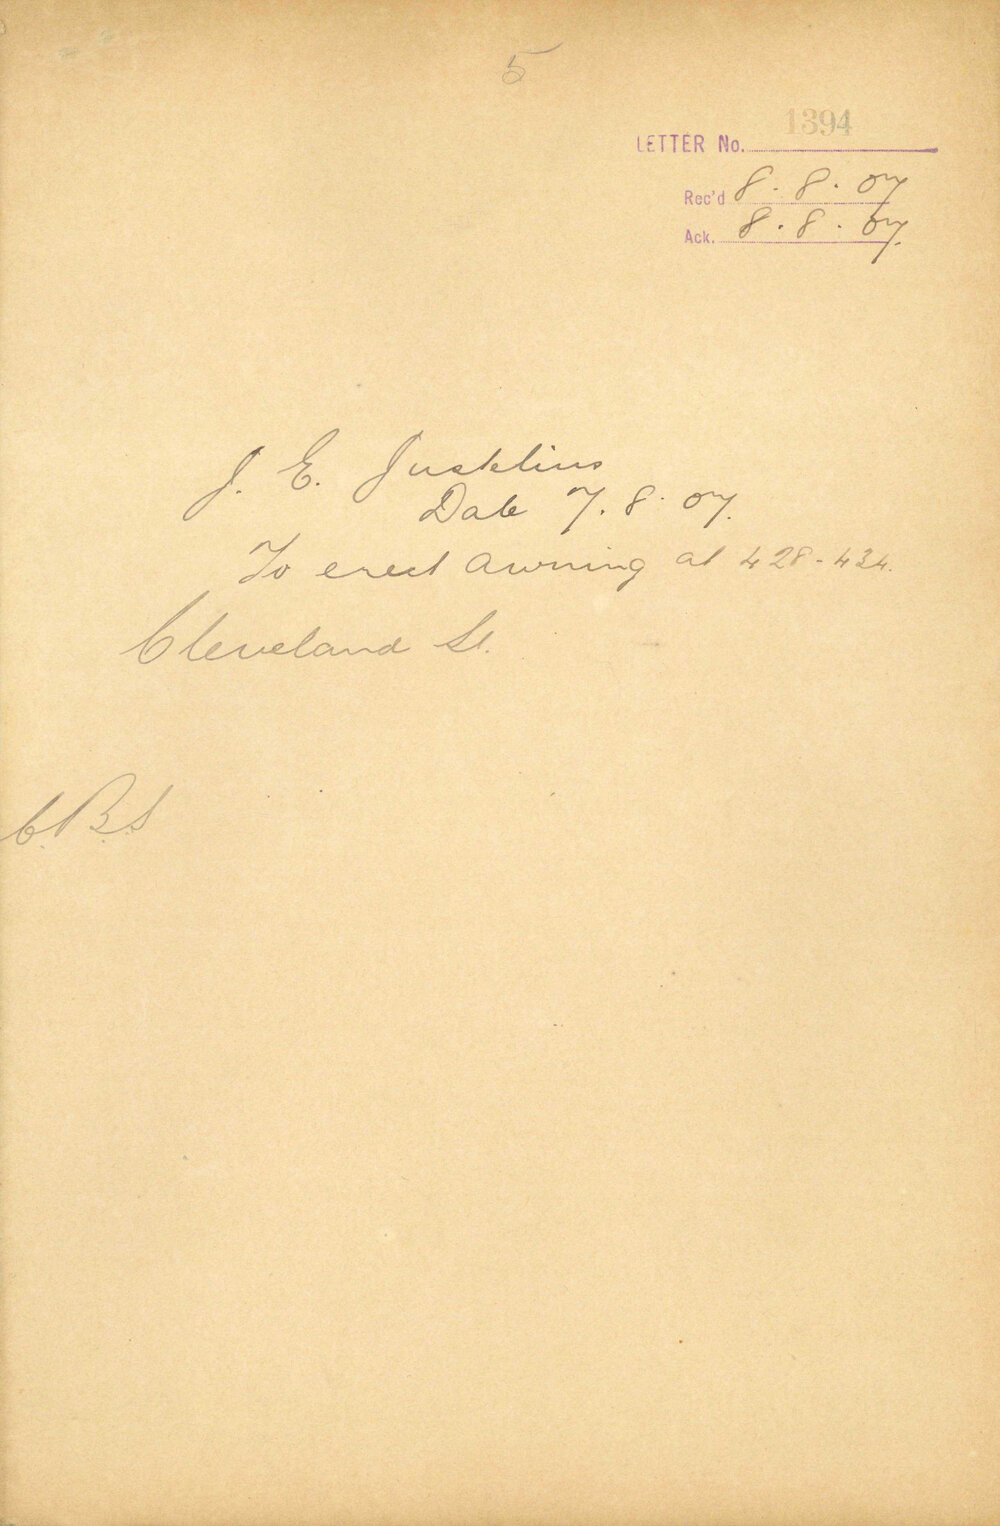 5
LETTER No. 1394
Rec'd 8.8.07
Ack. 8.8.07.
J. E. Justelius
Date 7.8.07.
To erect awning at 428-434.
Cleveland St.
C.B.S